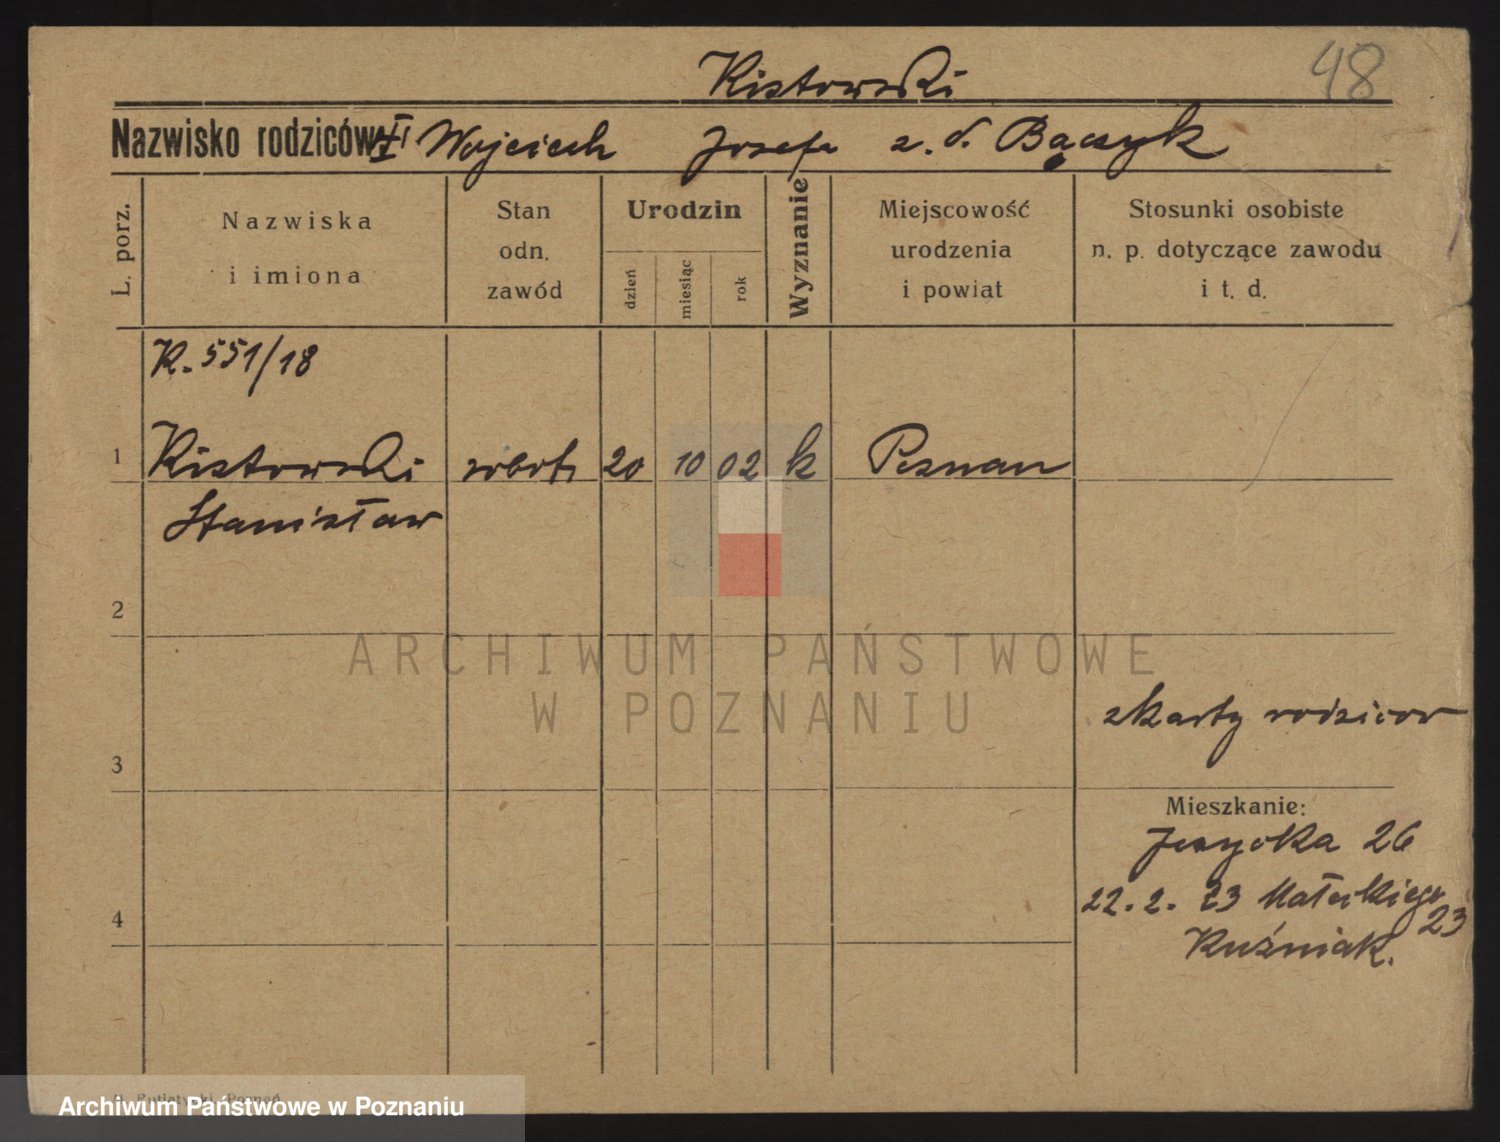 48
Kistowski
Nazwisko rodziców: Wojciech Józefa z. d. Bączyk
L. porz.
Nazwiska
i imiona
Stan
odn.
zawód
Urodzin
dzień
miesiąc
rok
Wyznanie
Miejscowość
urodzenia
i powiat
Stosunki osobiste
n. p. dotyczące zawodu
i t. d.
K. 551/18
1 Kistowski robotn 20 10 02 k Poznań
Stanisław
2
ARCHIWUM PAŃSTWOWE
W POZNANIU
z karty rodziców
3
Mieszkanie:
26
22. 2. 23 Małeckiego
23
4
Kuźniak.
Poznań
Archiwum Państwowe w Poznaniu